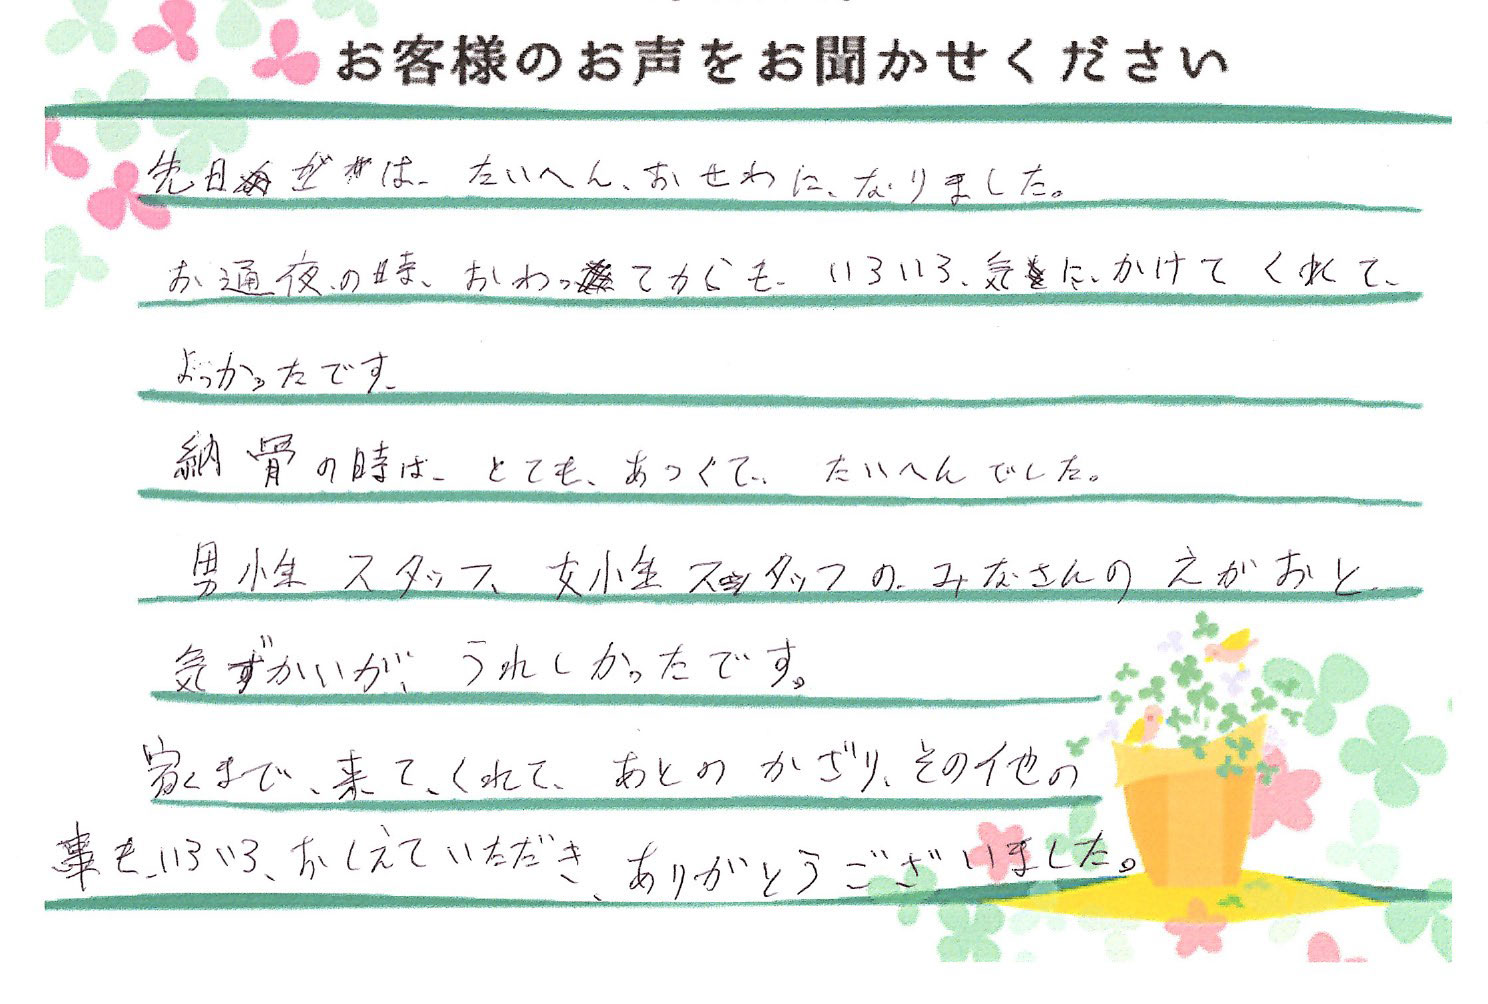 お客様のお声をお聞かせください
先日は、たいへん、おせわに、なりました。
お通夜、の時、おわってからも、いろいろ、気に、かけてくれて、
よっかったです、
納骨の時は、とても、あつくて、たいへんでした。
男性スタッフ、女性スタッフの、みなさんのえがおと、
気ずかいが、うれしかったです。
まで、来て、くれて、あとのかざり、その他の
事も、いろいろ、おしえていただき、ありがとうございました。